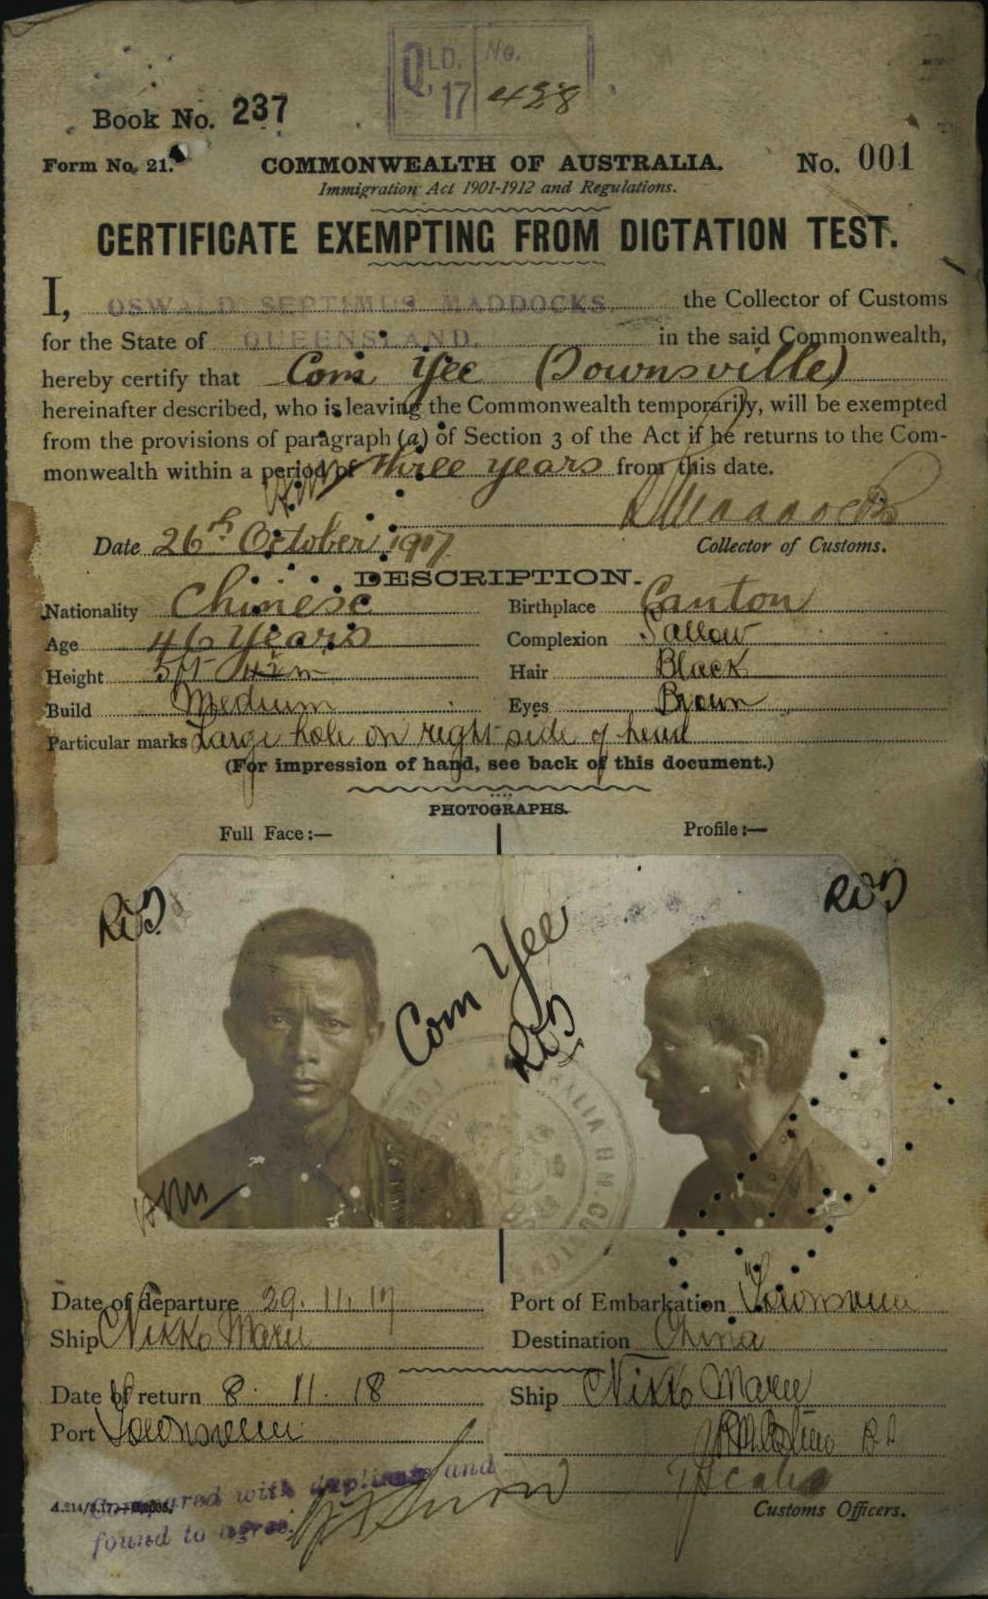 QLD. No.
17 428
Book No. 237
Form No. 21.
COMMONWEALTH OF AUSTRALIA.
No. 001
Immigration Act 1901-1912 and Regulations.
CERTIFICATE EXEMPTING FROM DICTATION TEST.
I, OSWALD SEPTIMUS MADDOCKS, the Collector of Customs
for the State of QUEENSLAND. in the said Commonwealth,
hereby certify that Com Yee (Townsville)
hereinafter described, who is leaving the Commonwealth temporarily, will be exempted
from the provisions of paragraph (a) of Section 3 of the Act if he returns to the Com-
monwealth within a period of three years from this date.
Date 26th October 1917.
Collector of Customs.
DESCRIPTION.
Nationality Chinese Birthplace Canton
Age 46 years Complexion Sallow
Height 5ft Hair Black
Build Medium Eyes Brown
Particular marks Large hole on right side of head
(For impression of hand, see back of this document.)
PHOTOGRAPHS.
Full Face:—
Profile:—
Com Yee
Date of departure 29.11.17 Port of Embarkation Townsville
Ship Nikko Maru Destination China
Date of return 8.11.18 Ship Nikko Maru
Port Townsville
Compared with duplicate and
found to agree.
Customs Officers.